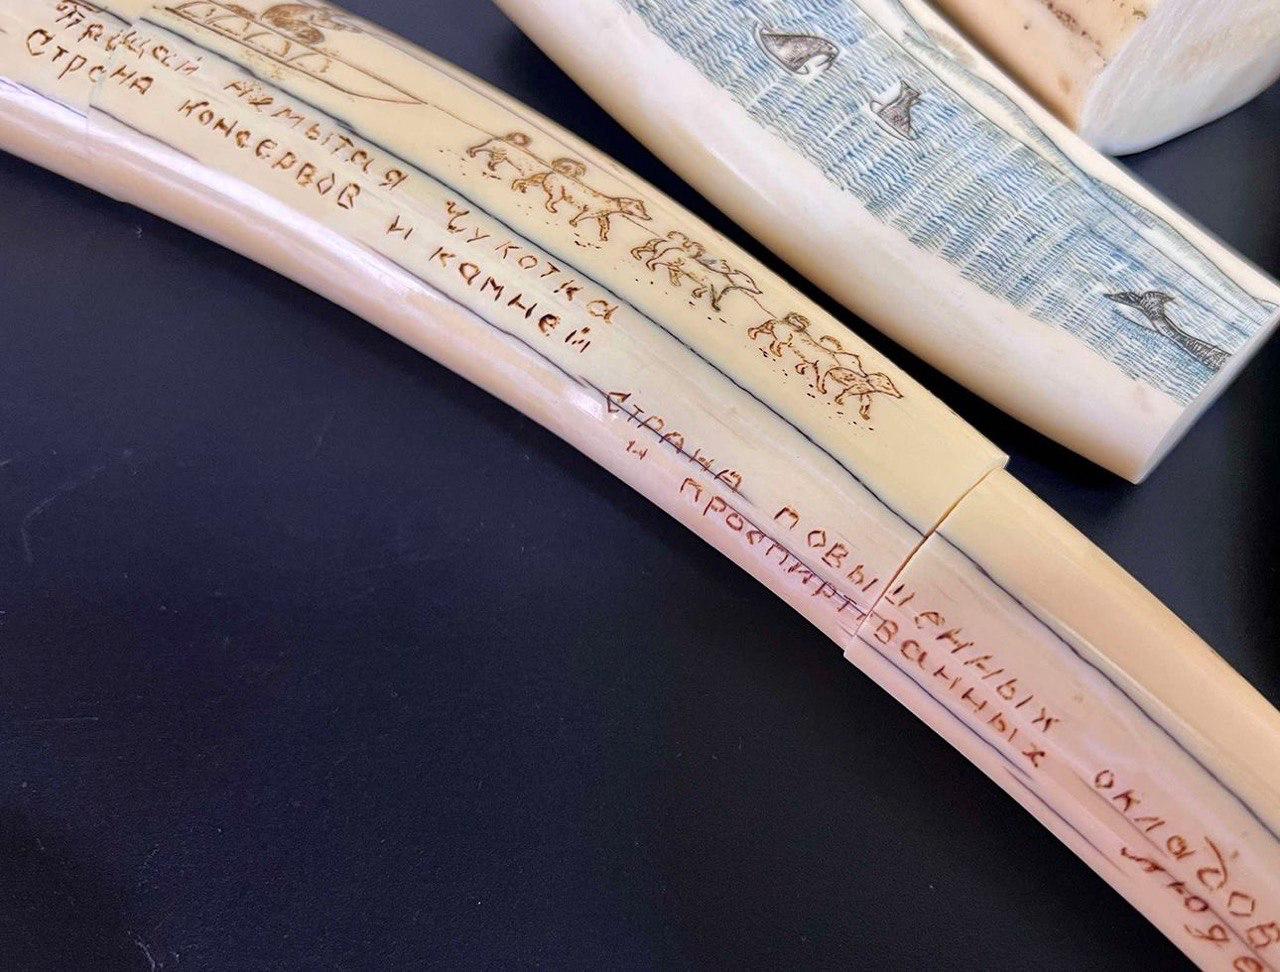 Прощай немытая Чукотка
Страна консервов и камней
СТРАНА повышенных окладов
и проспиртованных люде